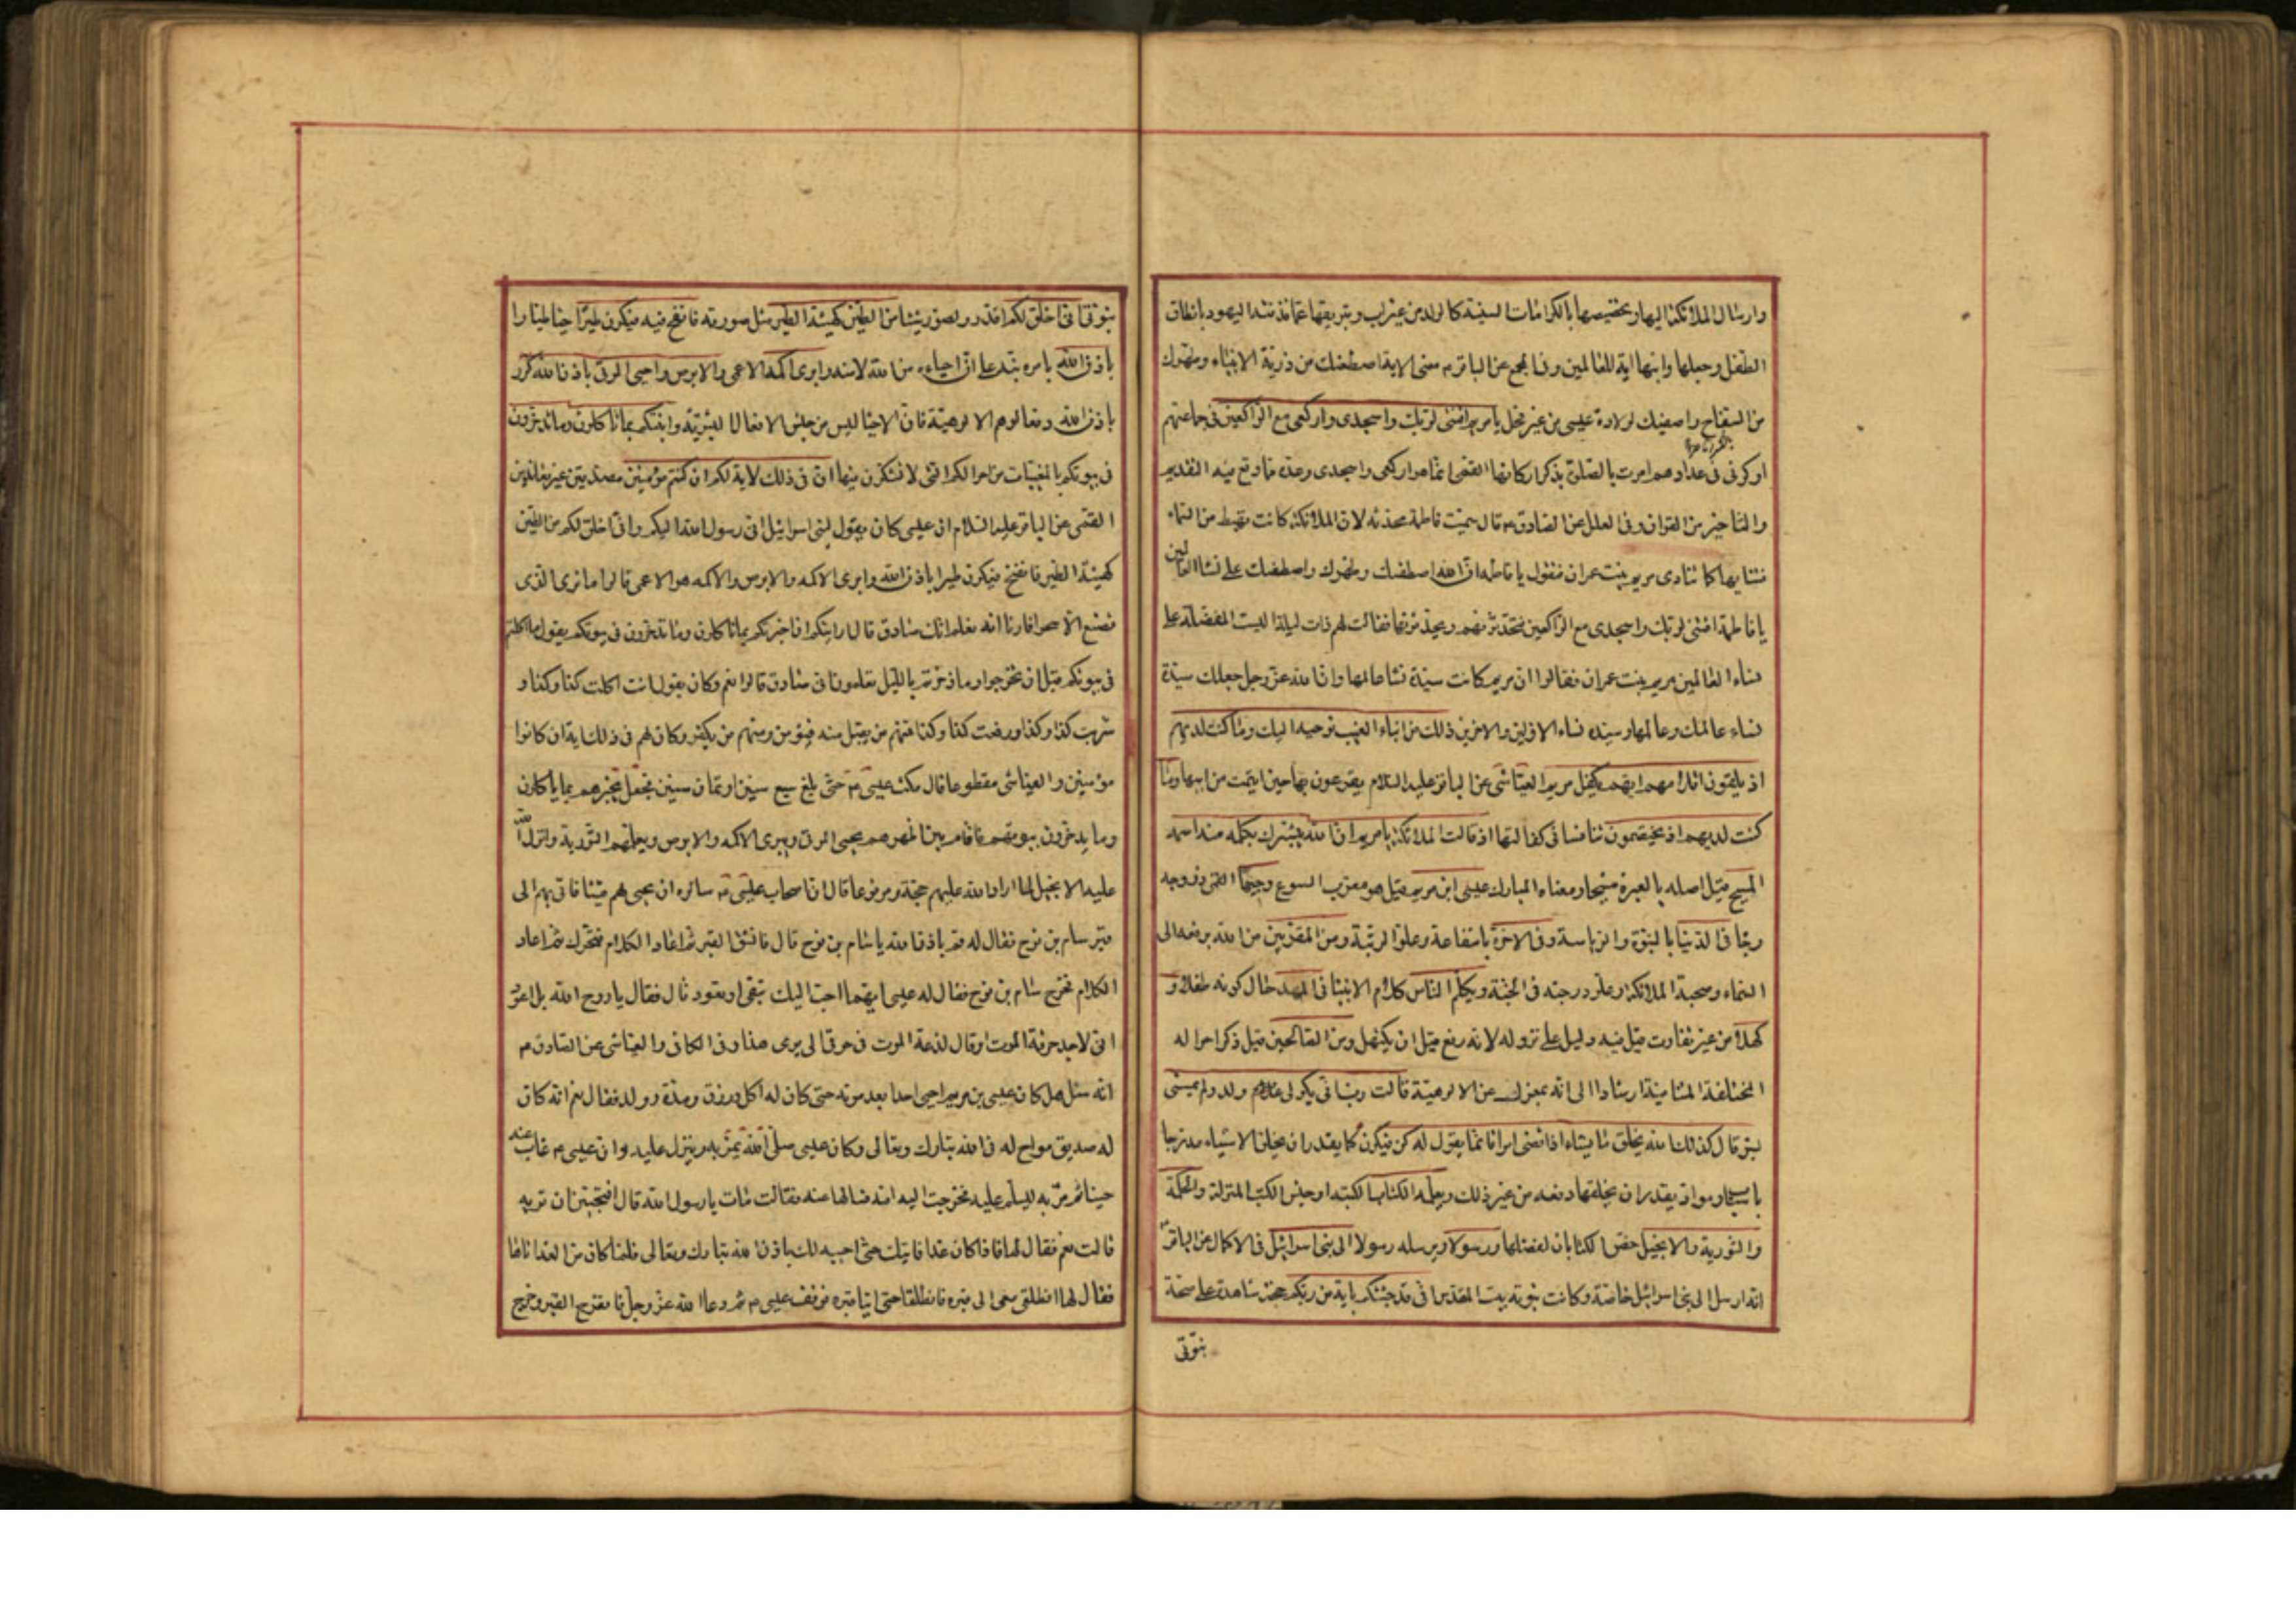 وارسال الملائكة اليها وتخصيصها بالكرامات السنية كالولد من غير اب وتبريتها عما قذفته اليهود بانطاق
الطفل وجعلها وابنها اية للعالمين وفي المجمع عن الباقر م معنى الاية اصطفيك من ذرية الانبياء وطهرك
من السفاح واصفيك لولادة عيسى من غير فحل يا مريم اقنتي لربك واسجدي واركعي مع الراكعين في جماعتهم
او كوني في عدادهم امرت بالصلوة بذكر اركانها القمي انما هو اركعي واسجدي وعده مما وقع فيه التقديم
والتاخير من القران وفي العلل عن الصادق م قال سميت فاطمة محدثه لان الملائكة كانت تهبط من السماء
فتناديها كما تنادى مريم بنت عمران فتقول يا فاطمه ان الله اصطفيك وطهرك واصطفيك على نساء العالمين
يا فاطمة اقنتي لربك واسجدي مع الراكعين فتحدثهم ويحدثونها فقالت لهم ذات ليلة اليست المفضلة على
نساء العالمين مريم بنت عمران فقالوا ان مريم كانت سيدة نساء عالمها وان الله عز وجل جعلك سيدة
نساء عالمك وعالمها وسيده نساء الاولين والاخرين ذلك من انباء الغيب نوحيه اليك وما كنت لديهم
اذ يلقون اقلامهم ايهم يكفل مريم العياشي عن الباقر عليه السلام يقرعون بها حين ايتمت من ابيها وما
كنت لديهم اذ يختصمون تنافسا في كفالتها اذ قالت الملائكة يا مريم ان الله يبشرك بكلمه منه اسمه
المسيح قيل اصله بالعبرة مشيحا ومعناه المبارك عيسى ابن مريم قيل هو معرب ايسوع وجيها القمي ذو وجه
وجاه في الدنيا بالنبوة والرياسة وفي الاخرة بالشفاعة وعلو الرتبة ومن المقربين من الله برفعه الى
السماء وصحبة الملائكة وعلو درجته في الجنة ويكلم الناس كلام الانبياء في المهد حال كونه طفلا و
كهلا من غير تفاوت قيل فيه دليل على نزوله لانه رفع قبل ان يكتهل ومن الصالحين قيل ذكر احواله
المختلفة المتنافية ارشادا الى انه بمعزل عن الالوهية قالت رب انى يكون لي غلام ولد ولم يمسسني
بشر قال كذلك الله يخلق ما يشاء اذا قضى امرا فانما يقول له كن فيكون كما يقدر ان يخلق الاشياء مدرجا
باسباب ومواد يقدر ان يخلقها دفعه من غير ذلك ويعلمه الكتاب الكتبة او جنس الكتب المنزلة والحكمة
والتورية والانجيل خص الكتابان لفضلهما ورسولا ويرسله رسولا الى بني اسرائيل في الاكمال عن الباقر
انه ارسل الى بني اسرائيل خاصة وكانت نبوته ببيت المقدس اني قد جئتكم باية من ربكم حجة شاهدة على صحة
نبوتي
نبوتي اني اخلق لكم اقدر واصور شيئا من الطين كهيئة الطير مثل صورته فانفخ فيه فيكون طيرا حيا طيارا
باذن الله بامره نبه على ان احياءه من الله لا منه وابرئ الاكمه الاعمى والابرص واحيي الموتى باذن الله كرر
باذن الله دفعا لوهم الالوهية فان الاحياء ليس من جنس الافعال البشرية وانبئكم بما تاكلون وما تدخرون
في بيوتكم بالمغيبات من احوالكم التي لا تشكون فيها ان في ذلك لاية لكم ان كنتم مؤمنين مصدقين غير معاندين
القمي عن الباقر عليه السلام ان عيسى كان يقول لبني اسرائيل اني رسول الله اليكم واني اخلق لكم من الطين
كهيئة الطير فانفخ فيكون طيرا باذن الله وابرئ الاكمه والابرص والاكمه هو الاعمى قالوا ما نرى الذي
تصنع الا سحرا فارنا اية نعلم انك صادق قال ارايتكم ان اخبرتكم بما تاكلون وما تدخرون في بيوتكم يقول ما اكلتم
في بيوتكم قبل ان تخرجوا وما ذخرتم بالليل تعلمون اني صادق قالوا نعم وكان يقول انت اكلت كذا وكذا و
شربت كذا وكذا ورفعت كذا وكذا فمنهم من يقبل منه فيؤمن ومنهم من يكفر وكان لهم في ذلك اية ان كانوا
مؤمنين والعياشي مقطوعا قال مكث عيسى م حتى بلغ سبع سنين او ثمان سنين فجعل يخبرهم بما ياكلون
وما يدخرون بيوتهم فاقام بين اظهرهم يحيي الموتى ويبرئ الاكمه والابرص ويعلمهم التورية وانزل الله
عليه الانجيل لما اراد الله عليهم حجة ومرفوعا قال ان اصحاب عيسى م سالوه ان يحيي لهم ميتا فاتى بهم الى
قبر سام بن نوح فقال له قم باذن الله يا سام بن نوح قال فانشق القبر ثم اعاد الكلام فتحرك ثم اعاد
الكلام فخرج سام بن نوح فقال له عيسى ايهما احب اليك تبقى او تعود قال فقال يا روح الله بل اعود
اني لاجد حرقة الموت او قال لذعة الموت في جوفي الى يومي هذا وفي الكافي والعياشي عن الصادق م
انه سئل هل كان عيسى بن مريم احيى احدا بعد موته حتى كان له اكل ورزق ومدة وولد فقال نعم انه كان
له صديق مواخ له في الله تبارك وتعالى وكان عيسى صلى الله يمر به وينزل عليه وان عيسى م غاب عنه
حينا ثم مر به ليسلم عليه فخرجت اليه امه فسالها عنه فقالت مات يا رسول الله قال افتحبين ان تريه
قالت نعم فقال لها فاذا كان غدا فاتيك حتى احييه لك باذن الله تبارك وتعالى فلما كان من الغد اتاها
فقال لها انطلقي معي الى قبره فانطلقا حتى اتيا قبره فوقف عيسى م ثم دعا الله عز وجل فانفرج القبر وخرج